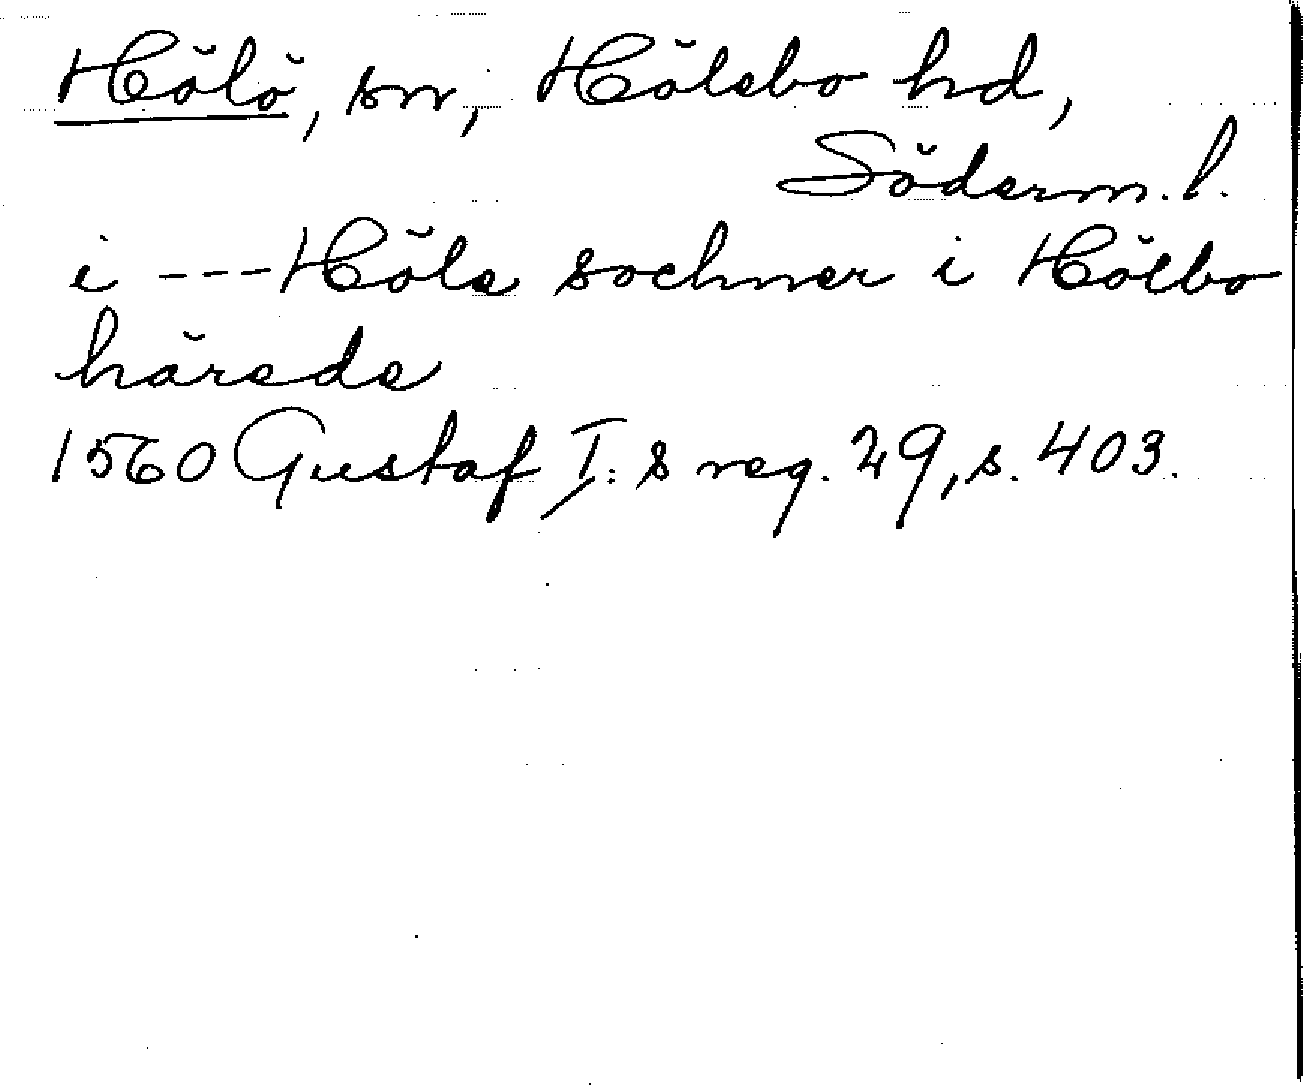 Hölö, sn, Hölebo hd,
Söderm. l.
i --- Höle sochner i Hölbo
härede
1560 Gustaf I: s reg. 29, s. 403.